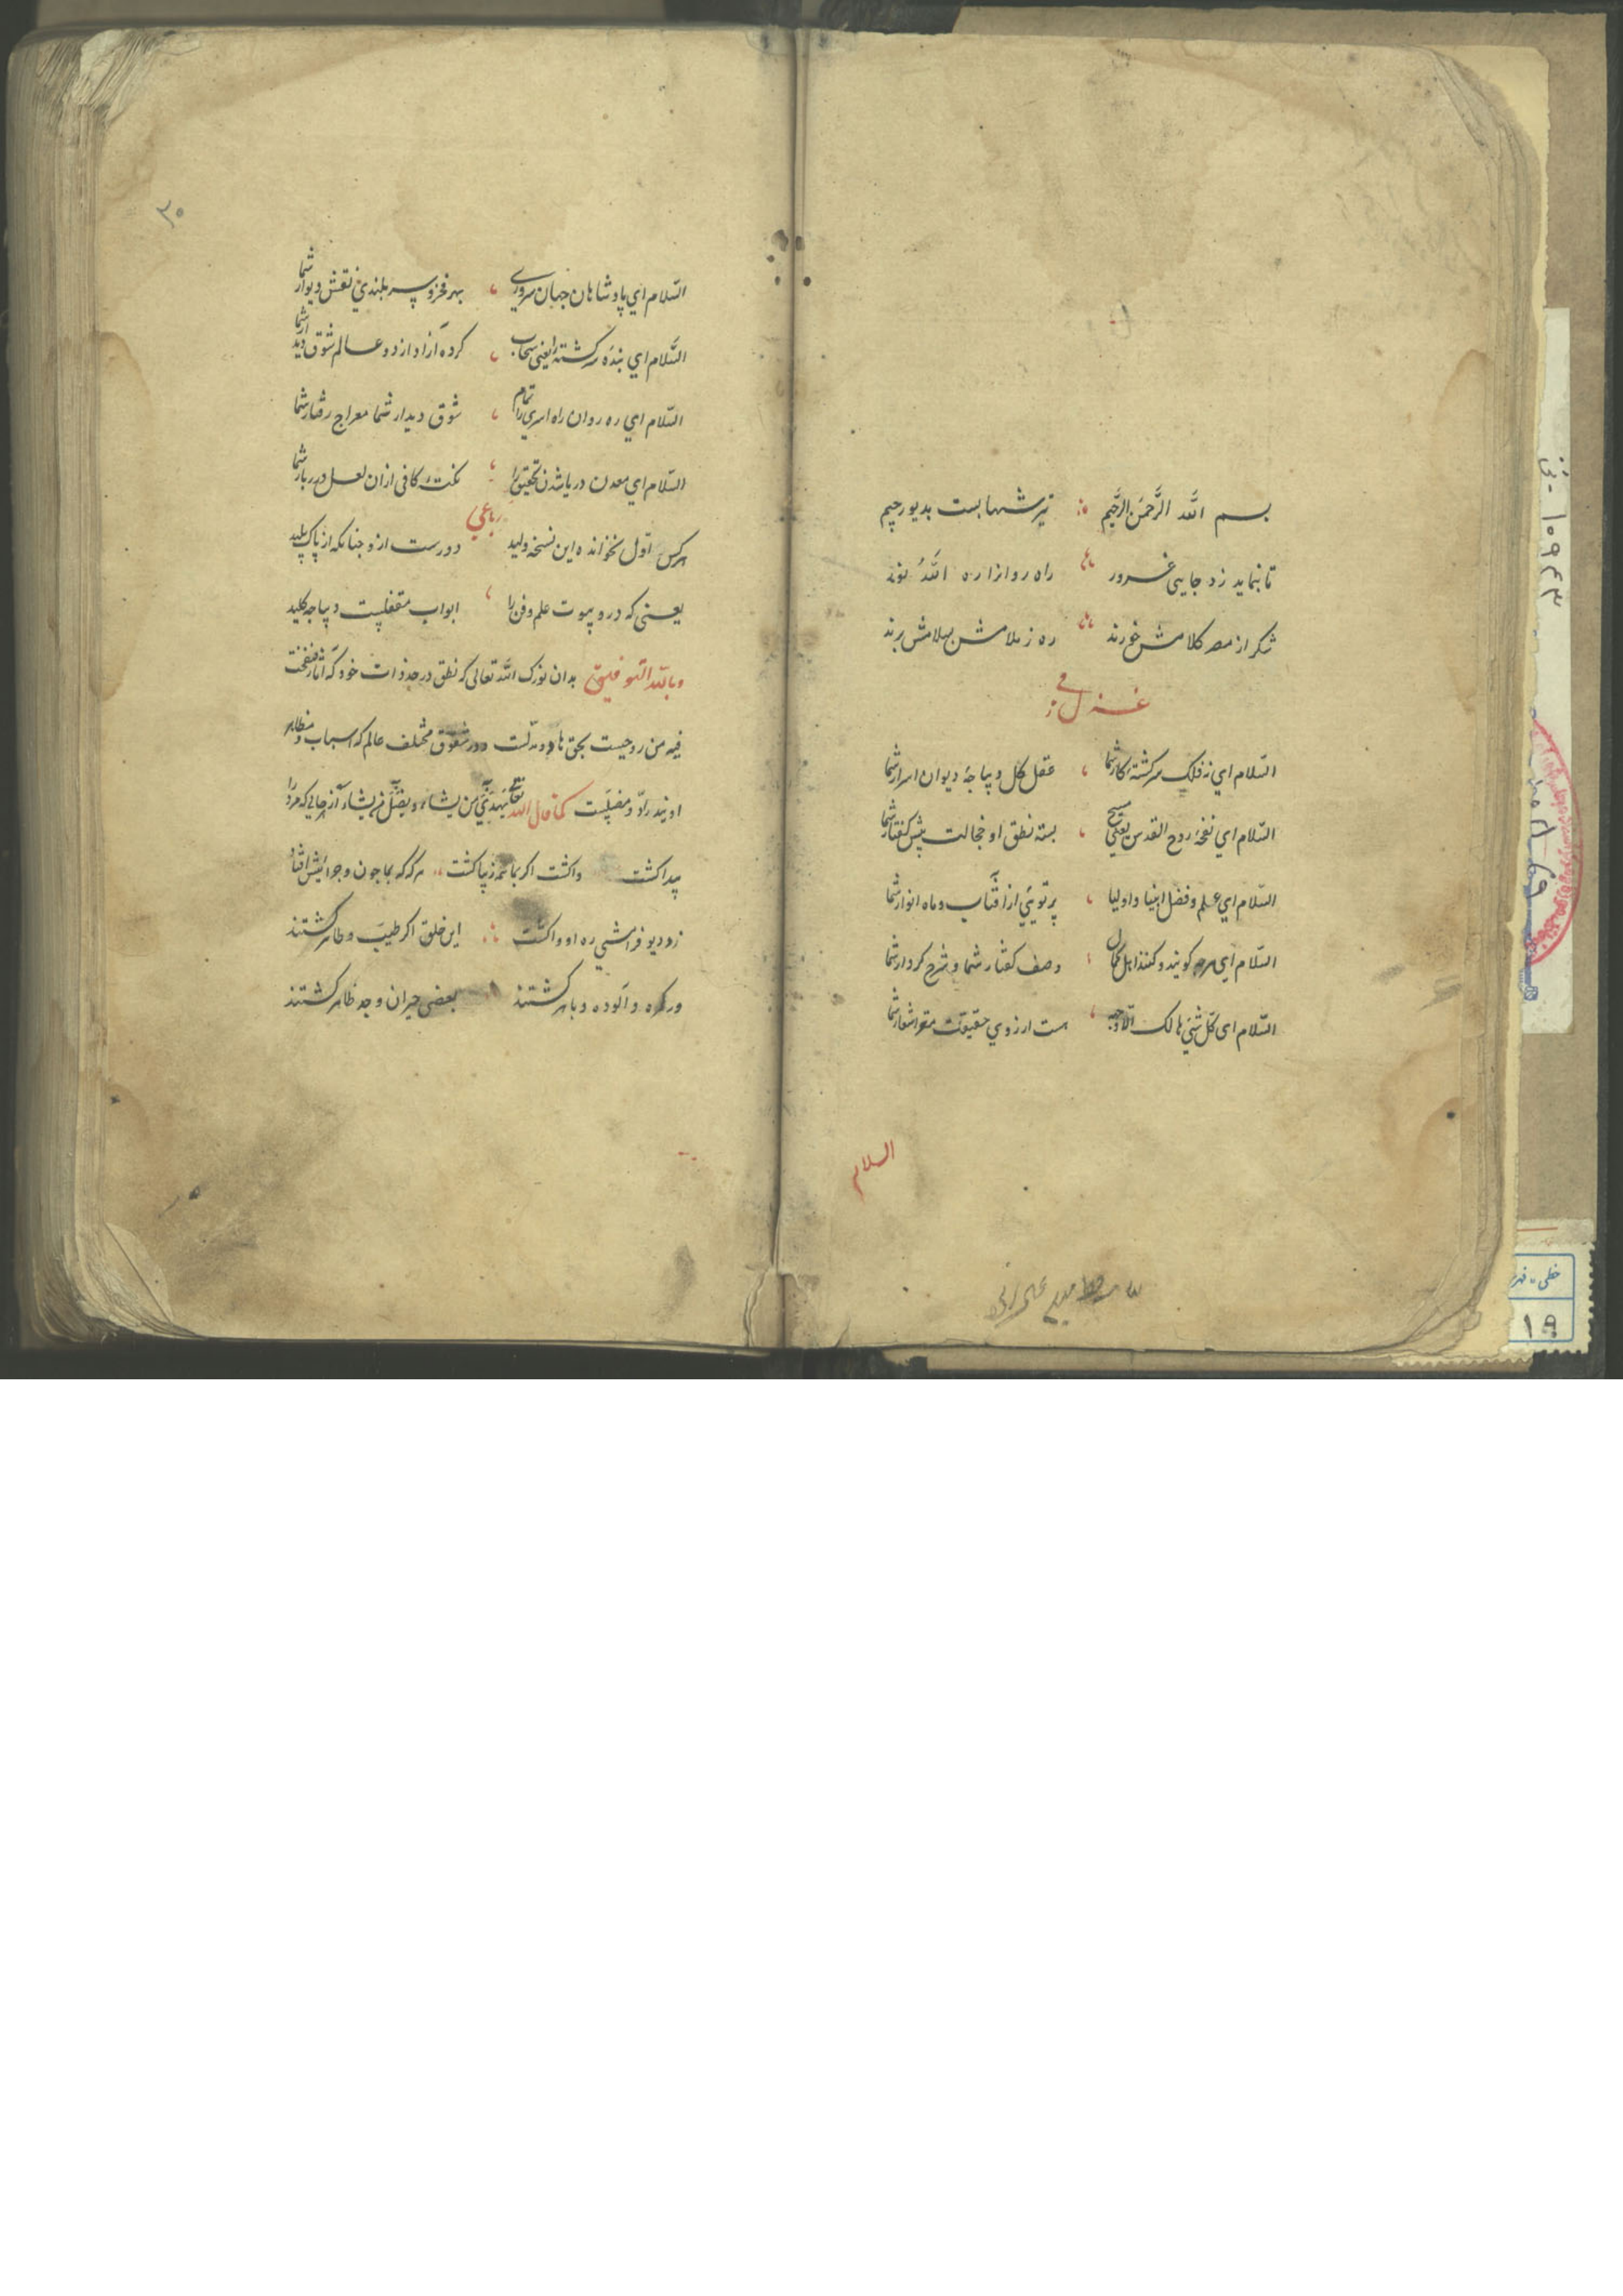 بسم الله الرَّحمَن الرَّحیم تیر شهابست بدیو رجیم
تا ننماید زد جایی غرور راه روانرا ره الله نور
شکر از مصر کلامش خورند ره ز ملامش بسلامش برند
غزل
السّلام ای نه فلک سرکشتهٔ کار شما عقل کل دیپاجهٔ دیوان اسرار شما
السّلام ای نفخهٔ روح القدس یعنی مسیح بسته نطق او خجالت پیش کفتار شما
السّلام ای علم و فضل انبیا و اولیا پرتویی از آفتاب و ماه انوار شما
السّلام ای هرچه کویند و کنند اهل کمال وصف کفتار شما و شرح کردار شما
السّلام ای کلّ شیٔ هالک الّا وجهه هست از روی حقیقت اشعار شما
السلام
السّلام ای پادشاهان جهان سروری بهر فخر و سربلندی نقش دیوار شما
السَّلام ای بندهٔ سرکشته را یعنی سحاب کرده آزاد از دو عالم شوق دیدار شما
السّلام ای ره روان راه اسری را تمام شوق دیدار شما معراج رفتار شما
السّلام ای معدن دریا شدن تحقیق را نکتهٔ کافی ازان لعل درربار شما
رباعی
هرکس اوّل نخوانده این نسخه ولید دورست ازو جنانکه از پاک پلید
یعنی که درو بیوت علم و فن را ابواب مقفلیست دیپاجه کلید
وبالله التوفیق بدان نورک الله تعالی که نطق در حد ذات خود که نفخت
فیه من روحیست بحق هادیست در شقوق مختلف عالم که اسباب و مظاهر
اویند رادّ و مضلیست کما قال الله تعالی یهدی من یشاء و یضلّ من یشاء از جایی که مرد را
پیدا کشت واکشت اکر بما همه زیبا کشت هر که که بما جون و جرائیش افتاد
زد دیو فراشی ره او واکشت این خلق اکر طیّب و طاهر کشتند
ور کره و آلوده و باهر کشتند بعضی حیران وجد ظاهر کشتند
۲۰
خطی
۱۰۹۴۳
۱۹